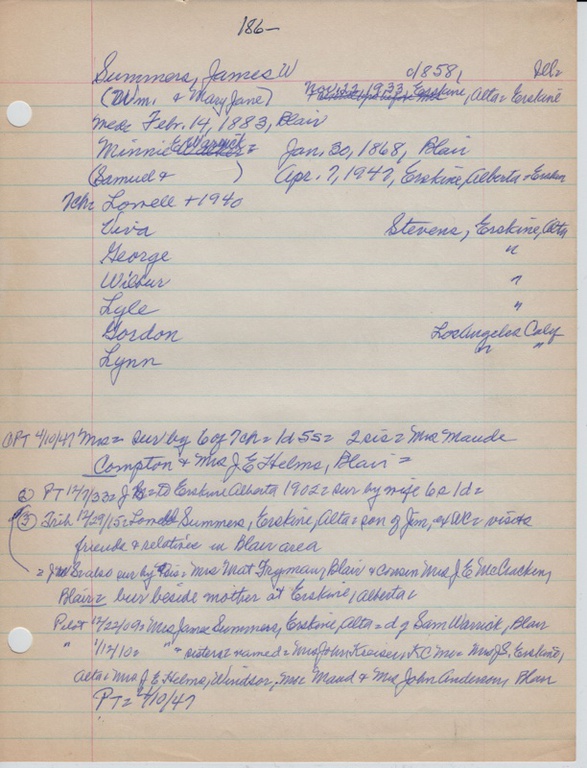 186-
Summers, James W d 1858, Ill=
(Wm. & Mary Jane) Nov. 22, 1933, Erskine, Alta= Erskine
med= Febr. 14, 1883, Blair
Minnie E Warrick = Jan. 30, 1868, Blair
(Samuel & ) Apr. 7, 1947, Erskine, Alberta = Erskine
7ch= Lowell + 1940
Viva Stevens, Erskine, Alta
George "
Wilbur "
Lyle "
Gordon Los Angeles Calif
Lynn " "
OPT 4/10/47 Mrs= sur by 6 of 7ch= 1d 5s= 2sis= Mrs Maude
Compton & Mrs J E Helms, Blair =
② PT 12/7/33= J = to Erskine Alberta 1902= sur by wife 6s 1d=
③ Trib 12/29/15= Lowell Summers, Erskine, Alta= son of Jim, ex WC= visits
friends & relatives in Blair area
= JW S also sur by sis= Mrs Mat Fryman, Blair & cousin Mrs J E McCracken,
Blair= bur beside mother at Erskine, Alberta=
Pilot 12/22/09= Mrs James Summers, Erskine, Alta= d of Sam Warrick, Blair
" 1/12/10= " " sisters= named= Mrs John Kreisers, KC Mo= Mrs J S, Erskine,
Alta= Mrs J E Helms, Windsor, Mo= Maud & Mrs John Anderson, Blair
PT= 4/10/47